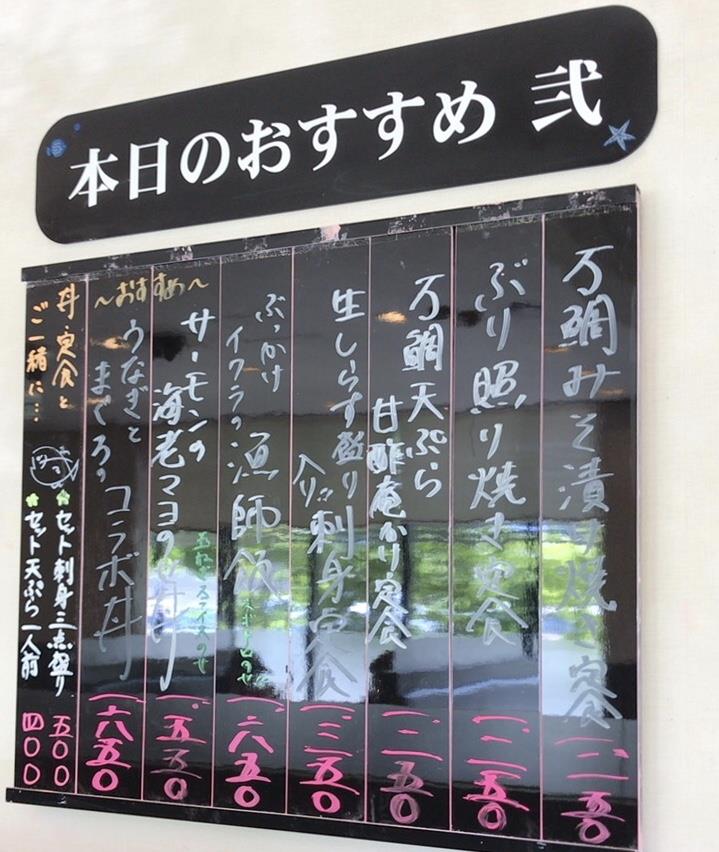 本日のおすすめ 弐
万鯛みそ漬け焼き定食
ぶり照り焼き定食
万鯛天ぷら
甘酢庵かけ定食
生しらす盛り
入り!!刺身定食
一.三五〇
ぶっかけ
漁師飯
一.六五〇
サーモンの
海老マヨのせ丼
玉ねぎスライスのせ
一.五五〇
〜おすすめ〜
うなぎと
まぐろの
コラボ丼
一.六五〇
丼・定食と
ご一緒に…
セット刺身三点盛り
五〇〇
セット天ぷら一人前
四〇〇